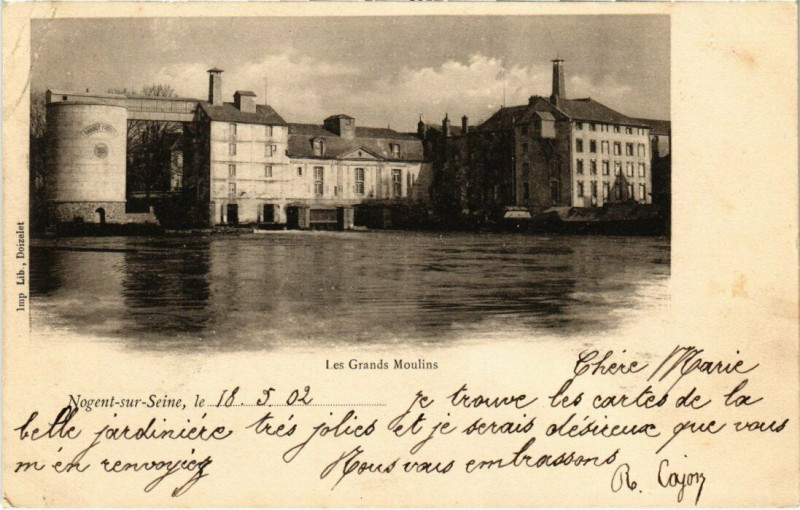 Imp Lib., Doizelet
Les Grands Moulins
Chère Marie
Nogent-sur-Seine, le 18. 5. 02 je trouve les cartes de la
belle jardinière très jolies et je serais désireux que vous
m'en renvoyiez Nous vous embrassons
R.